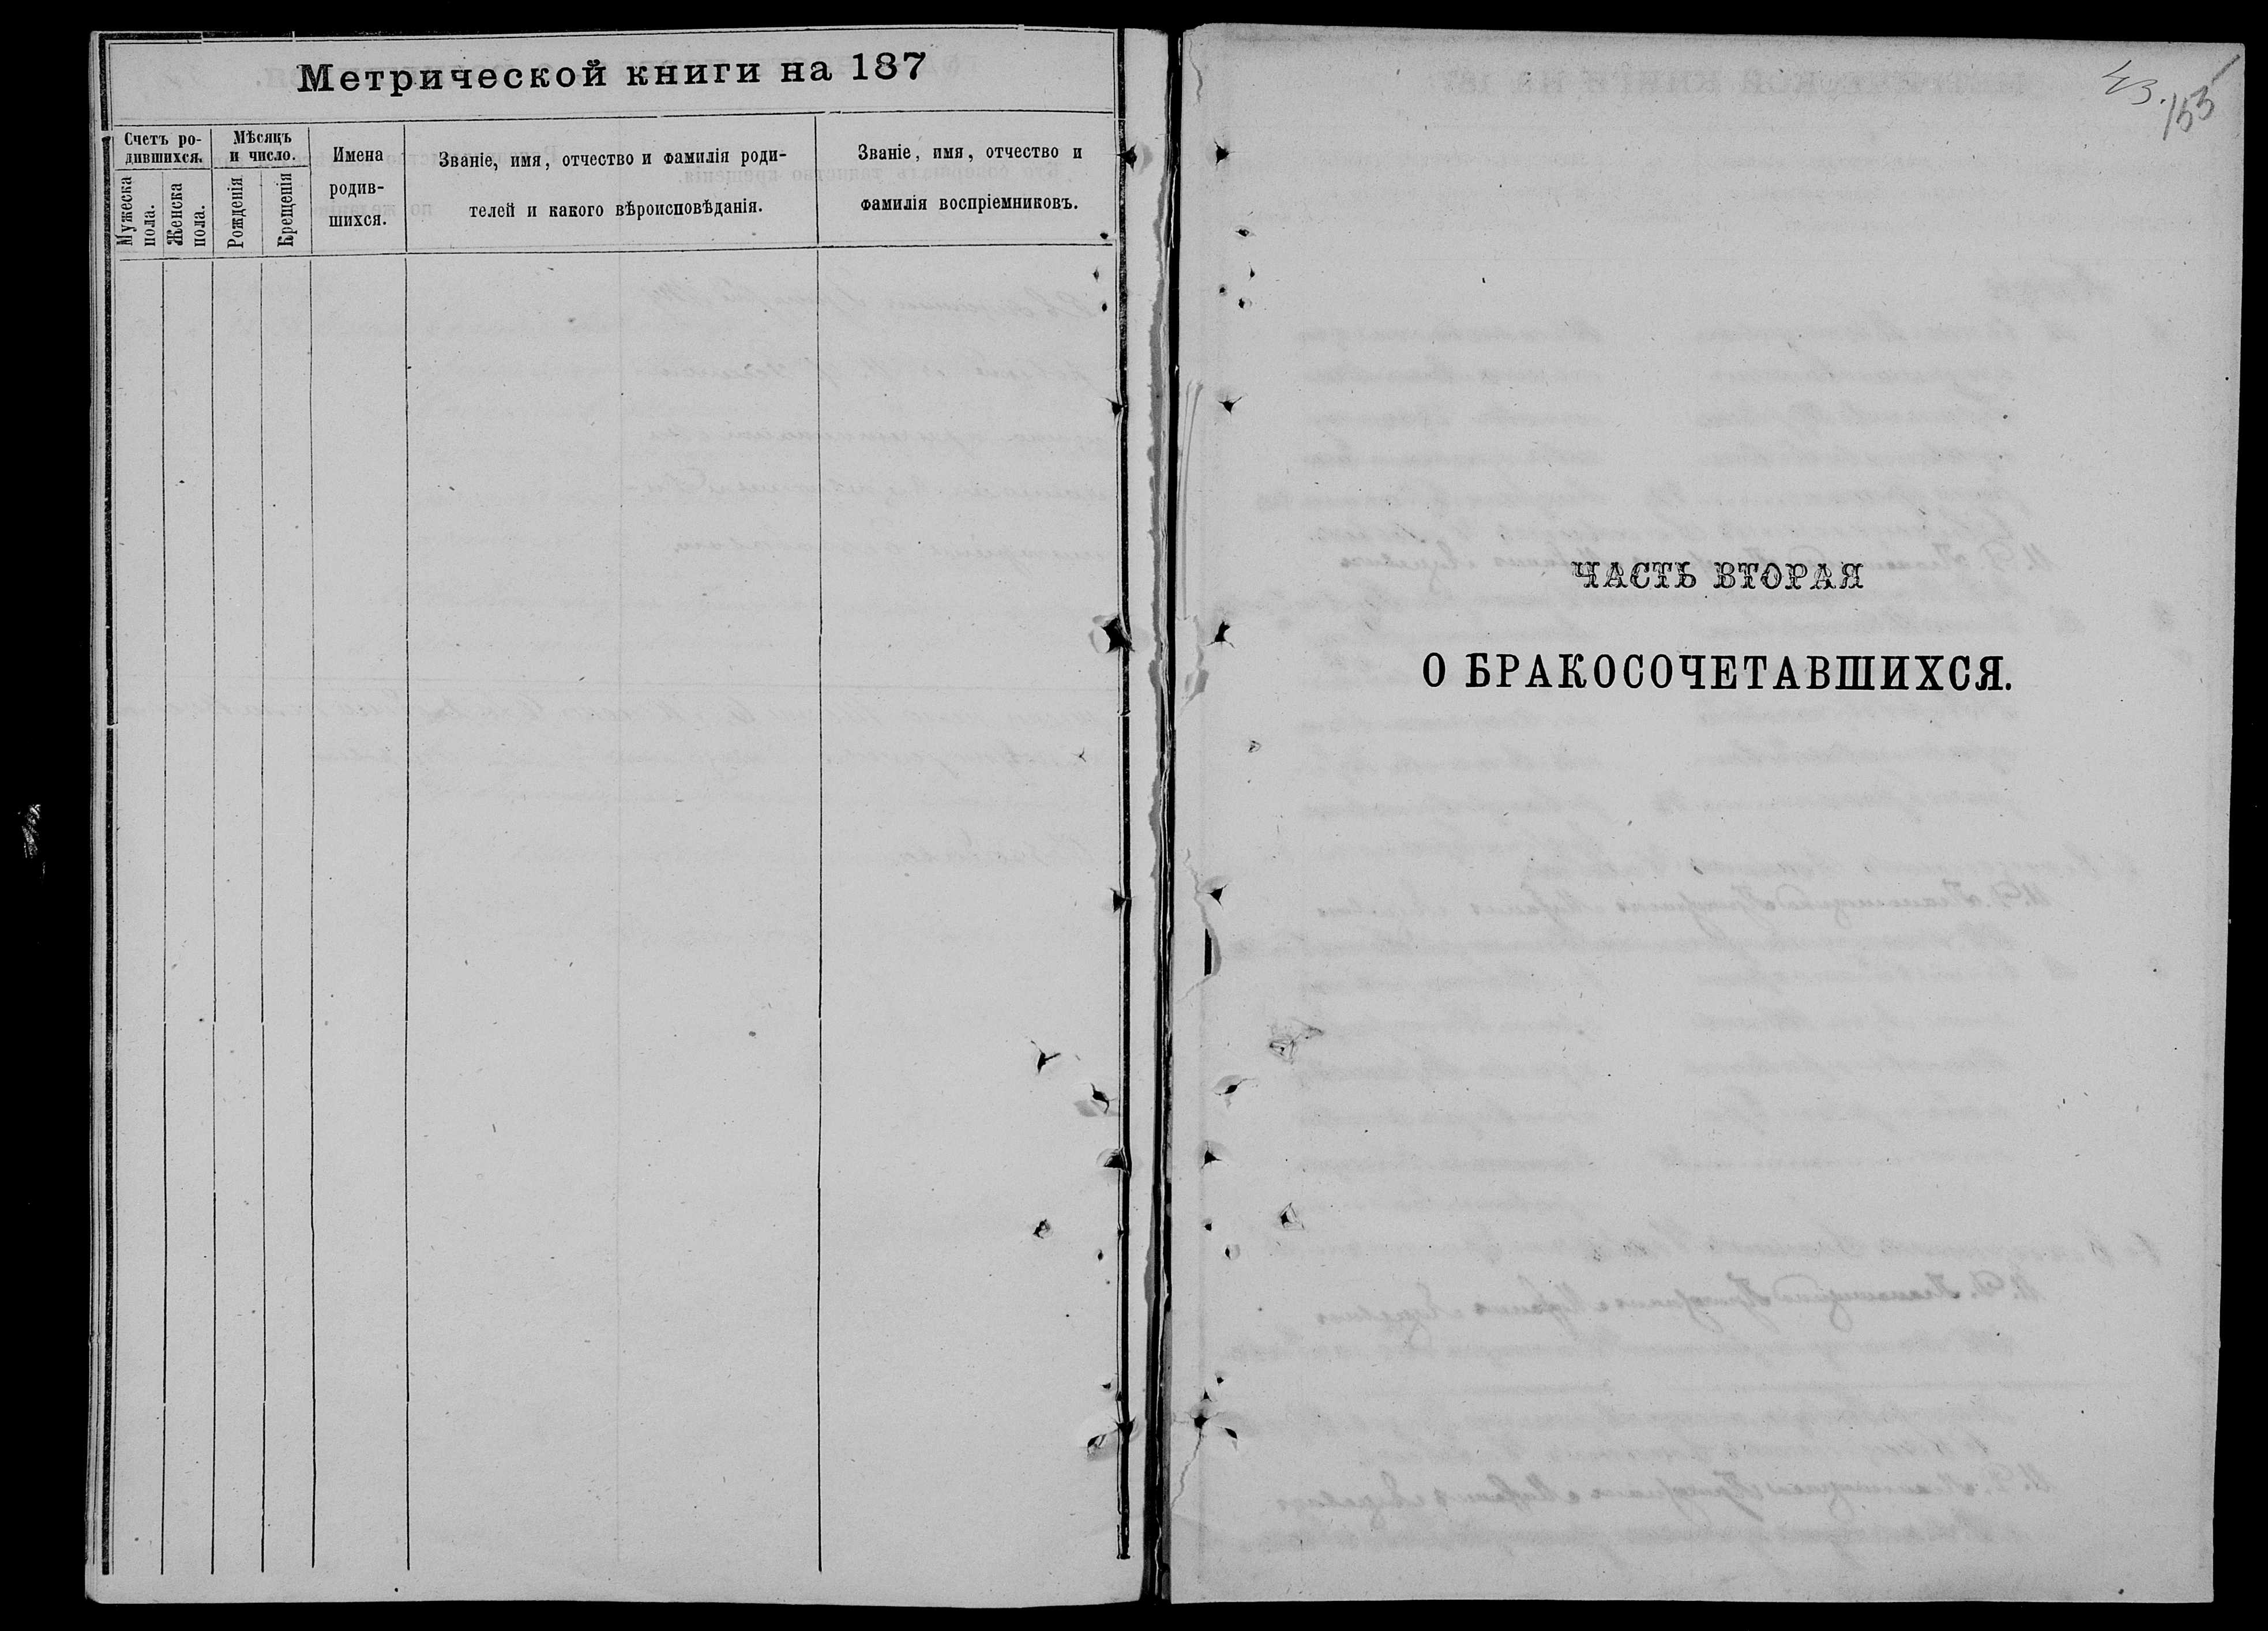 Метрической книги на 187
Счетъ ро-
дившихся.
Мужеска
пола.
Женска
пола.
Мѣсяцъ
и число.
Рожденія
Крещенія
Имена
родив-
шихся.
Званіе, имя, отчество и фамилія роди-
телей и какого вѣроисповѣданія.
Званіе, имя, отчество и
фамилія воспріемниковъ.
43.
153
ЧАСТЬ ВТОРАЯ
О БРАКОСОЧЕТАВШИХСЯ.